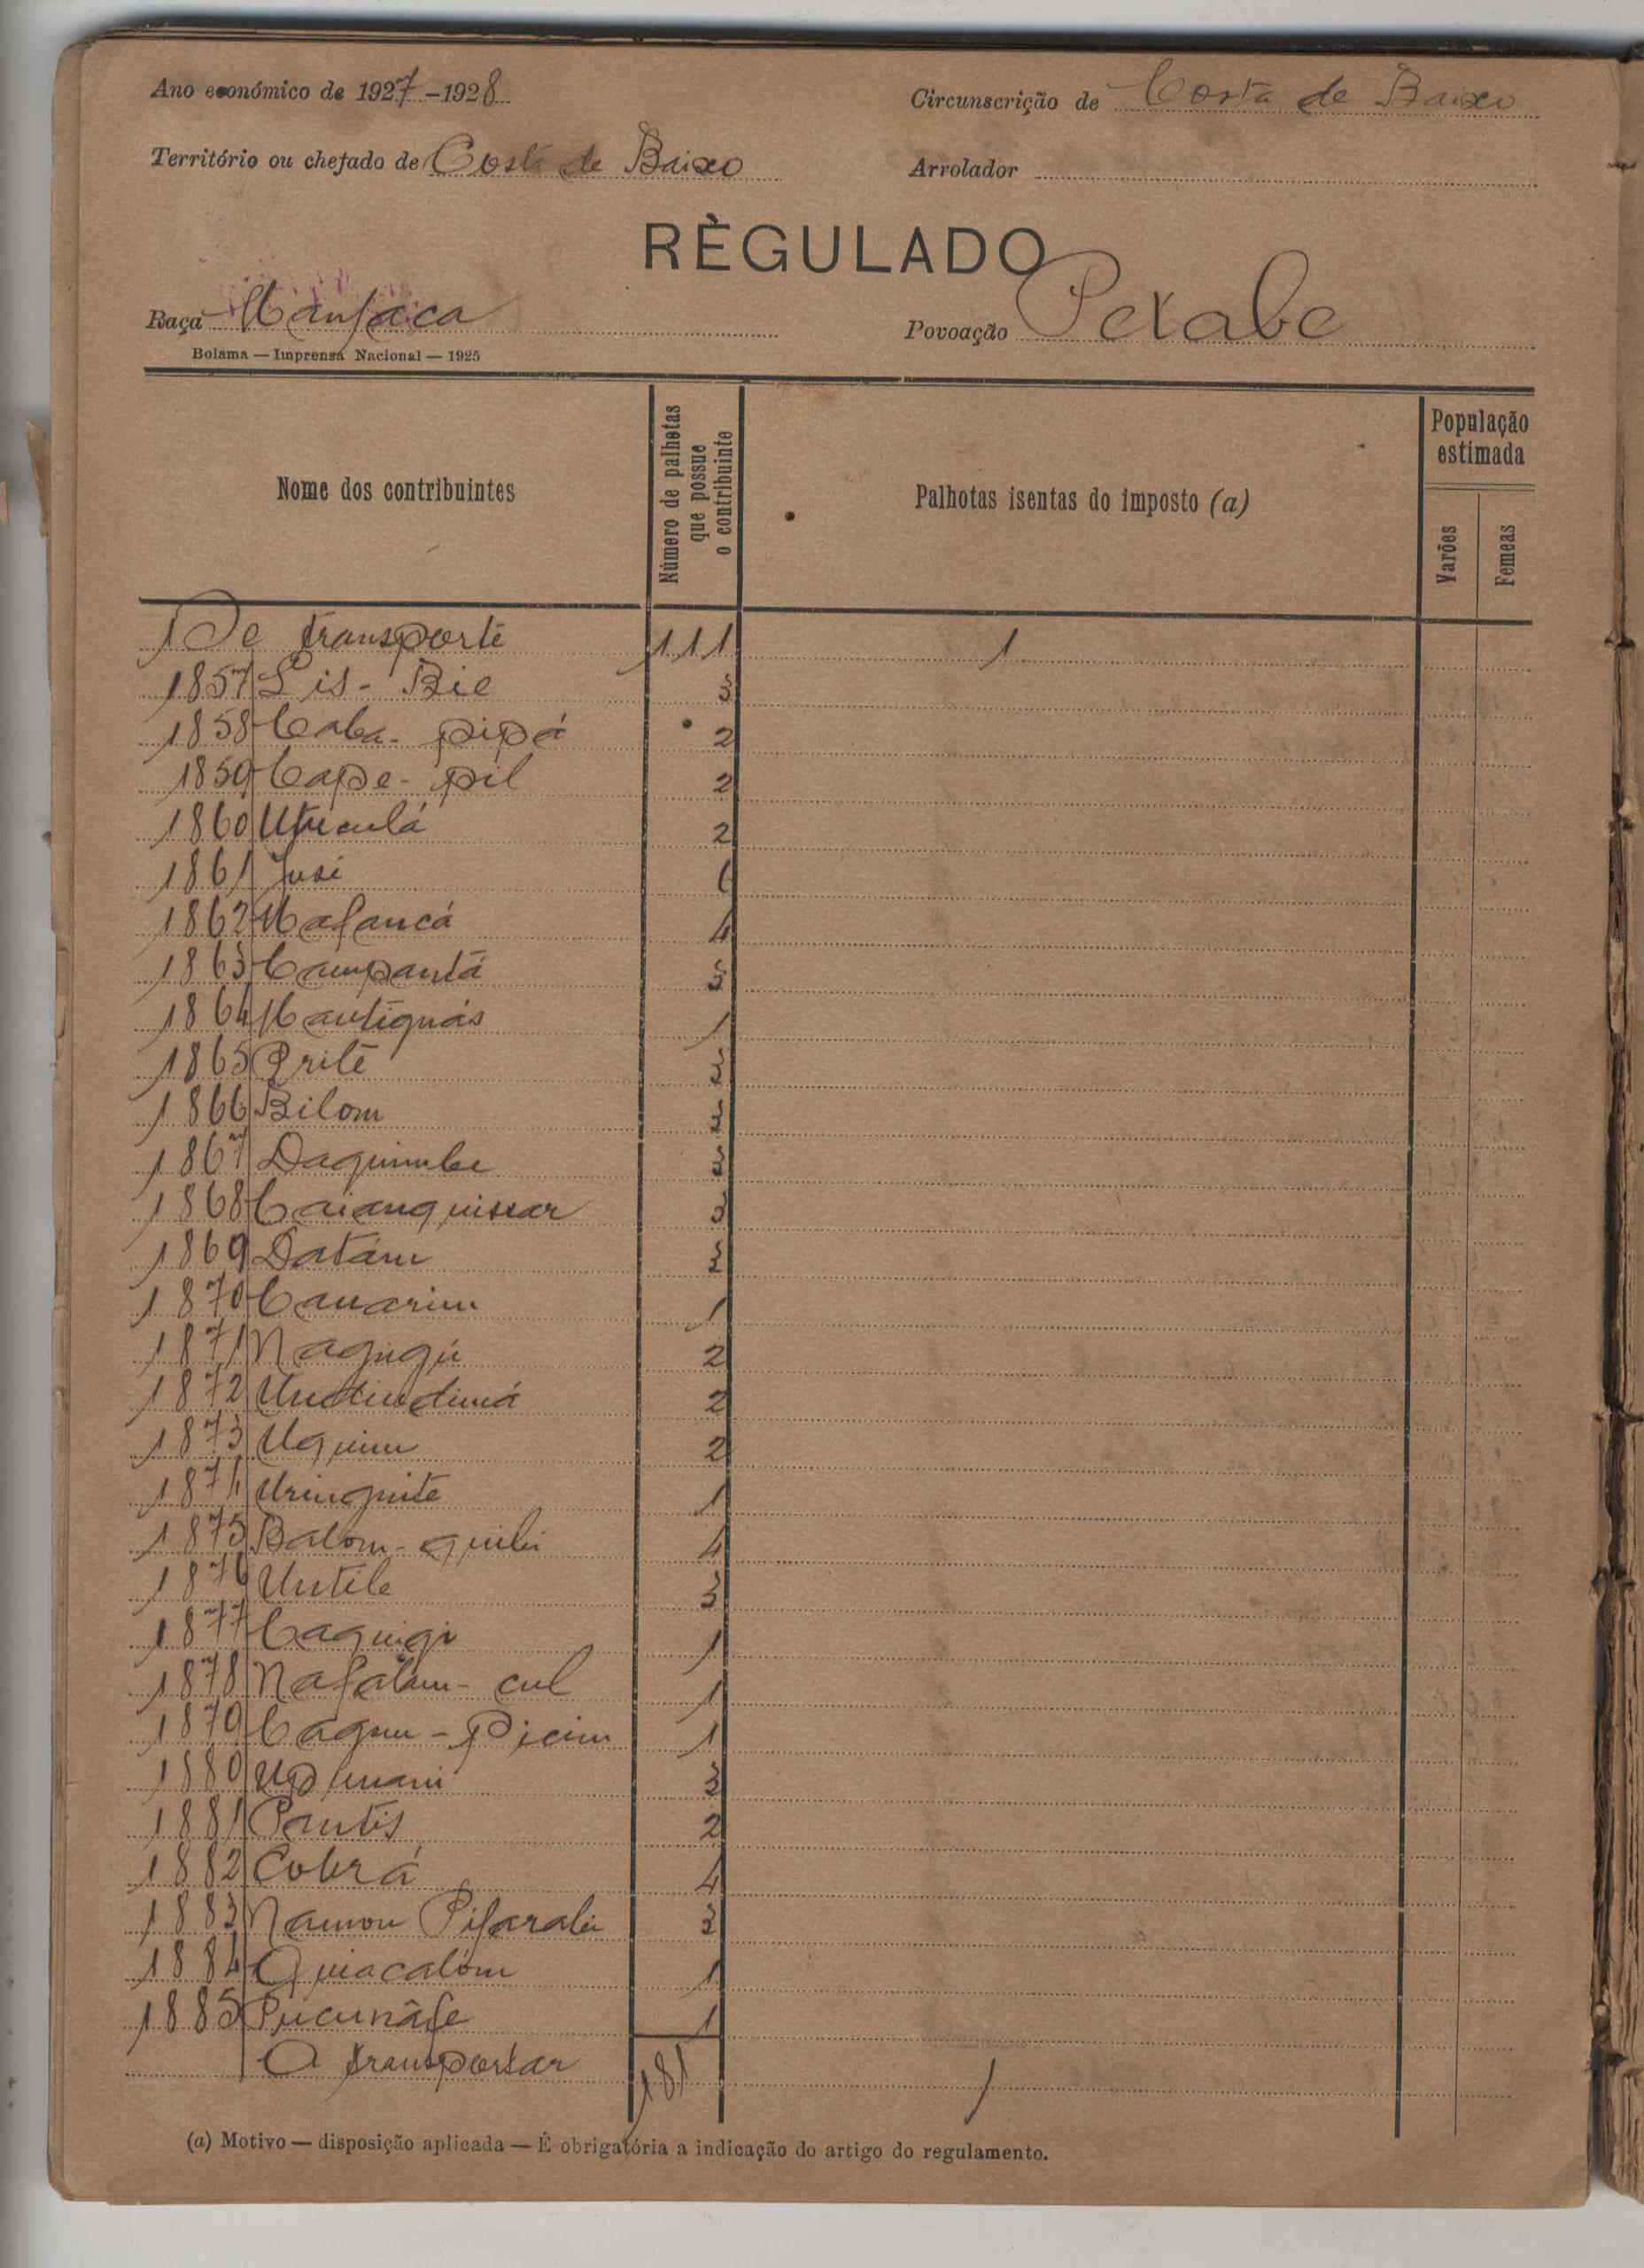 Ano económico de 1927-1928
Circunscrição de Costa de Baixo
Território ou chefado de Costa de Baixo
Arrolador
RÈGULADO
Raça Manjaca
Povoação Pexabe
Bolama — Imprensa Nacional — 1925
Nome dos contribuintes
Número de palhotas que possue o contribuinte
Palhotas isentas do imposto (a)
População estimada
Varões
Femeas
De transporte 111 1
1857 Lis-Bie 3
1858 Caba-pipá 2
1859 Cape-pil 2
1860 2
1861 Jusi
1862 Mafancá 4
1863 Campantá 3
1864 Mantignás 1
1865 Prité 2
1866 Bilom 2
1867 Daquimbe 2
1868 3
1869 Datám 2
1870 Canarim 1
1871 Nagugú 2
1872 Undindimá 2
1873 Uquim 2
1874 Uringuite 1
1875 Batom-quibi 4
1876 Untile 3
1877 Caquigi 1
1878 Nafatam-cul 1
1879 1
1880 3
1881 Pantis 2
1882 Cobrá 4
1883 Namon Pifarabi 3
1884 Quiacalóm 1
1885 Pucunáfe 1
A transportar 181 1
(a) Motivo — disposição aplicada — É obrigatória a indicação do artigo do regulamento.